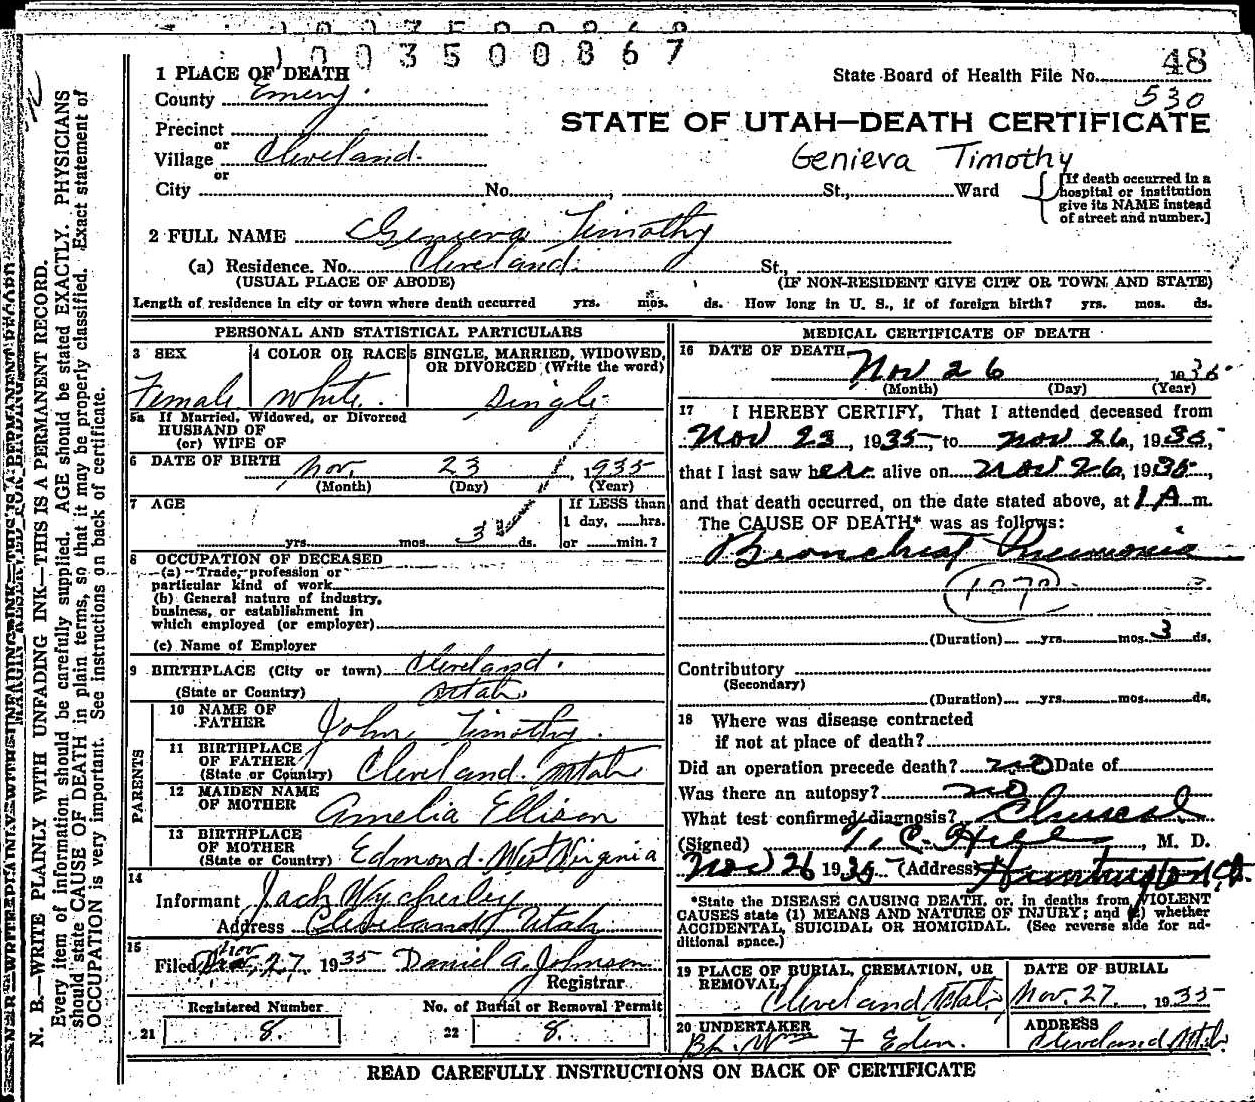 1003500867
48
1 PLACE OF DEATH
State Board of Health File No.
County Emery.
530
Precinct
STATE OF UTAH—DEATH CERTIFICATE
or
Village Cleveland.
Genieva Timothy
or
City No. St., Ward
[If death occurred in a hospital or institution give its NAME instead of street and number.]
2 FULL NAME Genieva Timothy
(a) Residence. No. Cleveland. St.,
(USUAL PLACE OF ABODE) (IF NON-RESIDENT GIVE CITY OR TOWN AND STATE)
Length of residence in city or town where death occurred yrs. mos. ds. How long in U. S., if of foreign birth? yrs. mos. ds.
PERSONAL AND STATISTICAL PARTICULARS
3 SEX 4 COLOR OR RACE 5 SINGLE, MARRIED, WIDOWED,
OR DIVORCED (Write the word)
Female White. Single
5a If Married, Widowed, or Divorced
HUSBAND OF
(or) WIFE OF
6 DATE OF BIRTH Nov. 23, 1935
(Month) (Day) (Year)
7 AGE If LESS than
1 day, hrs.
yrs. mos. 3 ds. or min.?
8 OCCUPATION OF DECEASED
(a) Trade, profession or
particular kind of work
(b) General nature of industry,
business, or establishment in
which employed (or employer)
(c) Name of Employer
9 BIRTHPLACE (City or town) Cleveland.
(State or Country) Utah.
PARENTS
10 NAME OF
FATHER John Timothy.
11 BIRTHPLACE
OF FATHER
(State or Country) Cleveland. Utah
12 MAIDEN NAME
OF MOTHER Amelia Ellison
13 BIRTHPLACE
OF MOTHER
(State or Country) Edmond. West Virginia
14
Informant Jack Wycherley
Address Cleveland Utah
15
Filed Nov. 27, 1935 Daniel A. Johnson
Registrar
Registered Number No. of Burial or Removal Permit
21 8. 22 8.
MEDICAL CERTIFICATE OF DEATH
16 DATE OF DEATH Nov 26 1935
(Month) (Day) (Year)
17 I HEREBY CERTIFY, That I attended deceased from
Nov 23, 1935 to Nov 26, 1935,
that I last saw her alive on Nov 26, 1935,
and that death occurred, on the date stated above, at 1 A m.
The CAUSE OF DEATH* was as follows:
Bronchial Pneumonia
107a
(Duration) yrs. mos. 3 ds.
Contributory
(Secondary)
(Duration) yrs. mos. ds.
18 Where was disease contracted
if not at place of death?
Did an operation precede death? no Date of
Was there an autopsy? no
What test confirmed diagnosis? Clinical
(Signed) T. C. Hill, M. D.
Nov 26 1935 (Address) Huntington, Ut.
*State the DISEASE CAUSING DEATH, or, in deaths from VIOLENT
CAUSES state (1) MEANS AND NATURE OF INJURY; and (2) whether
ACCIDENTAL, SUICIDAL OR HOMICIDAL. (See reverse side for ad-
ditional space.)
19 PLACE OF BURIAL, CREMATION, OR
REMOVAL DATE OF BURIAL
Cleveland Utah Nov. 27 1935
20 UNDERTAKER ADDRESS
Bp. Wm F Eden. Cleveland Utah.
READ CAREFULLY INSTRUCTIONS ON BACK OF CERTIFICATE
N. B.—WRITE PLAINLY WITH UNFADING INK—THIS IS A PERMANENT RECORD.
Every item of information should be carefully supplied. AGE should be stated EXACTLY. PHYSICIANS
should state CAUSE OF DEATH in plain terms, so that it may be properly classified. Exact statement of
OCCUPATION is very important. See instructions on back of certificate.